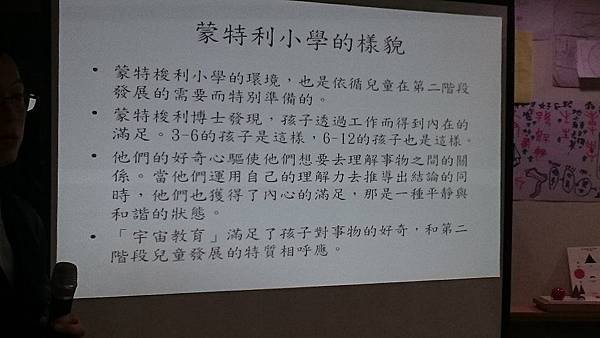 蒙特利小學的樣貌
• 蒙特梭利小學的環境，也是依循兒童在第二階段
發展的需要而特別準備的。
• 蒙特梭利博士發現，孩子透過工作而得到內在的
滿足。3-6的孩子是這樣，6-12的孩子也是這樣。
• 他們的好奇心驅使他們想要去理解事物之間的關
係。當他們運用自己的理解力去推導出結論的同
時，他們也獲得了內心的滿足，那是一種平靜與
和諧的狀態。
• 「宇宙教育」滿足了孩子對事物的好奇，和第二
階段兒童發展的特質相呼應。